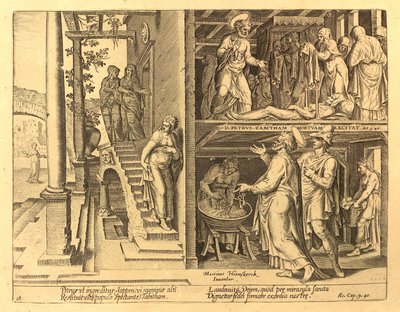 D. PETRUS TABITHAM MORTUAM EXCITAT. Act. 9. 40.
Martinus Heemskerck
Inventor.
Petrus ut ingreditur, suppressis
Restituit vitæ populo spectante Tabitham.
Laudavitq Deum, quod per miracula sancta
Dignetur fidei firmare exordia nostræ.
Ac. Cap. 9. 40.
18